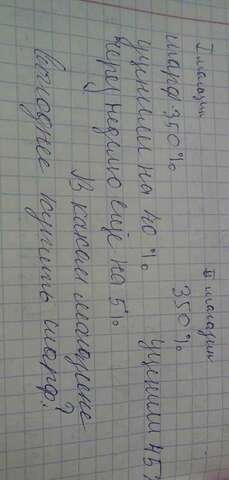 I магазин II магазин
шарф 350% 350%
уценили на 40%. уценили 45%
через неделю еще на 5%
В каком магазине
выгоднее купить шарф?